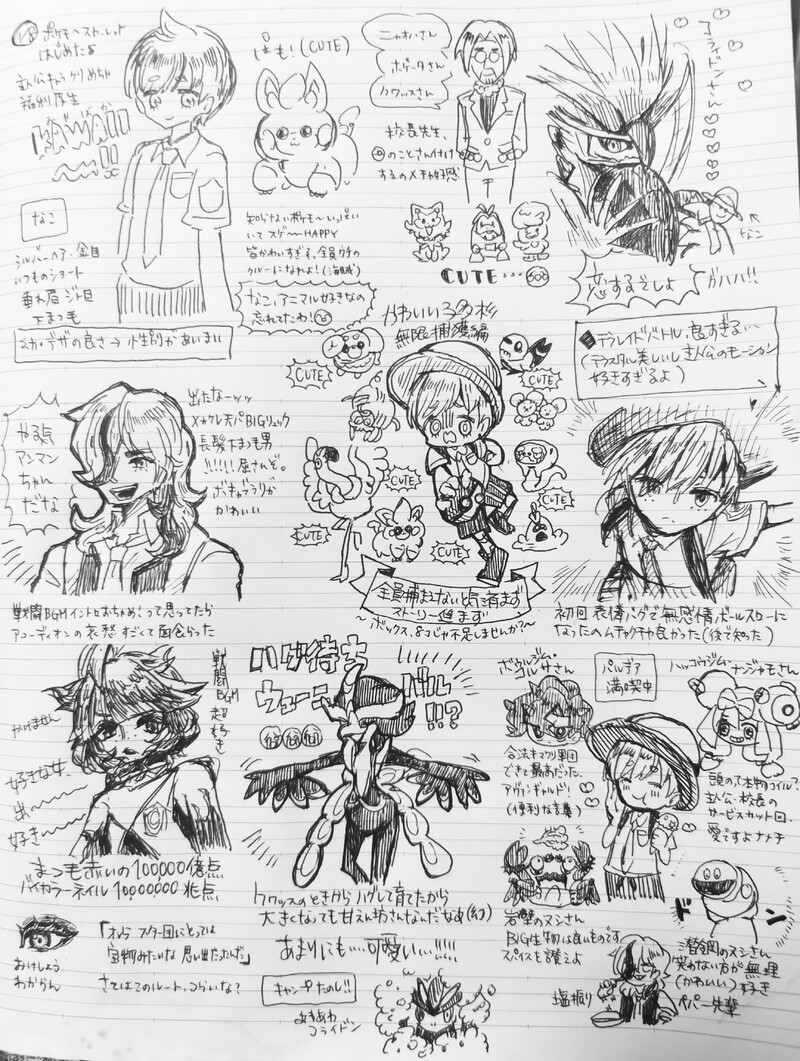 ポケモンスカーレット
はじめたよ
主人公キャラクリめちゃ
福利厚生
KAWAII
〜〜!!
なこ
シルバーヘア、金目
いつものショート
垂れ眉ジト目
下まつ毛
幼いデザの良さ→性別があいまい
ぱも!(CUTE)
知らないポケモンいっぱい
いてスゲ〜〜HAPPY
皆かわいすぎる、全員ウチの
クルーになれよ!(海賊)
なこ、アニマル好きなの
忘れてたわ!
ニャオハさん
ホゲータさん
クワッスさん
校長先生、
のことさん付け
するのメチャ好感
CUTE...
コライドンさ〜ん
なこ
恋するぞしょ
ガハハ!
かわいい子多杉
無限捕獲編
CUTE
CUTE
CUTE
CUTE
CUTE
CUTE
全員捕まえないと気済まず
ストーリー進まず
〜ボックス、8コじゃ不足しませんか?〜
テラレイドバトル、良すぎる…
(テラスタル美しいし主人公のモーション
好きすぎるよ)
初回表情バグで無感情ボールスローに
なったのムチャクチャ良かった(後で知った)
やる気
アンマン
ちゃん
だな
出たなーッッ
メカクレ天パBIGリュック
長髪下まつ毛男
!!!!!屈さんぞ。
ボキャブラリが
かわいい
戦闘BGMイントロおちゃめ!って思ってたら
アコーディオンの哀愁すごくて面食らった
戦闘BGM
超好き
かけません
好きな女
出〜〜〜
好き〜〜
まつ毛赤いの100,000億点
バイカラーネイル10,000,000兆点
おけしょう
わからん
「オレら スター団にとっては
宝物みたいな 思い出だったんだ」
さてはこのルート、つらいな?
ハゲ待ち
ウェーニバル!!?
クワッスのときからハグして育てたから
大きくなっても甘えん坊さんなんだなあ(幻)
あまりにも…可愛い…!!!!
キャンプたのし!!
あわあわ
コライドン
ボウルジム・
コルサさん
合法キマワリ軍団
できて最高だった。
アヴァンギャルド!
(便利な言葉)
岩壁のヌシさん
BIG生物は良いものです
スパイスを讃えよ
塩振り
パルデア
満喫中
ハッコウジム・
ナンジャモさん
頭のって本物コイル?
主人公・校長の
サービスカット回。
愛ですよナナチ
ドン
潜鋼のヌシさん
笑わない方が無理
(かわいい)すき
ペパー先輩